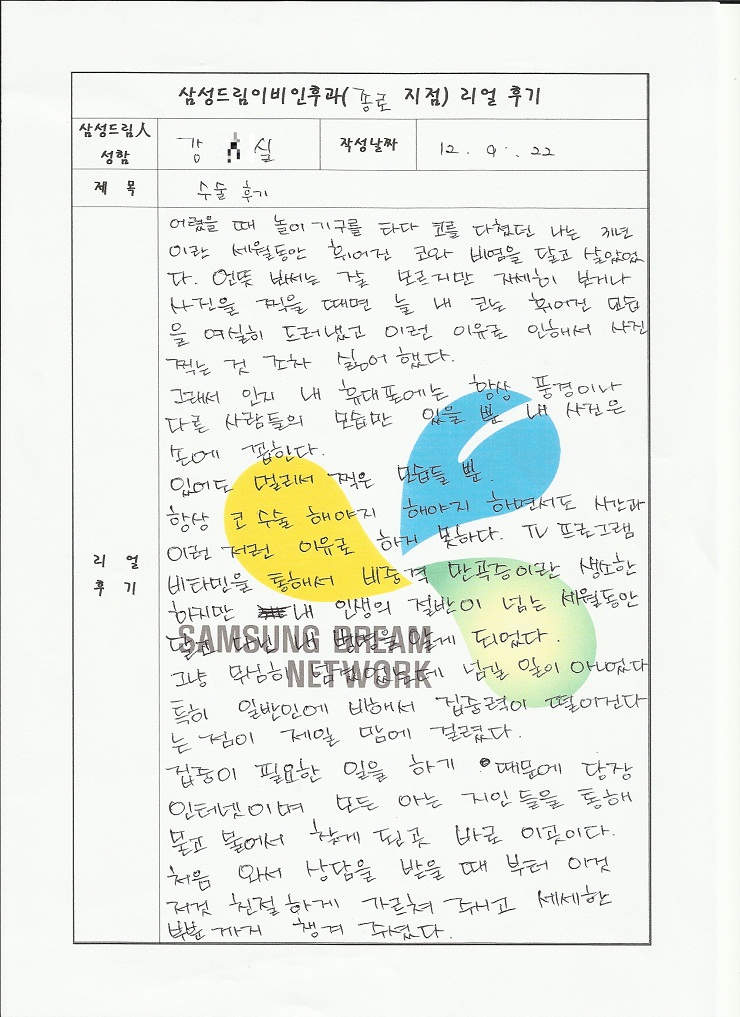 삼성드림이비인후과(종로 지점) 리얼 후기
삼성드림人 성함
강 실
작성날짜
12. 9. 22
제 목
수술 후기
리 얼 후 기
어렸을 때 놀이기구를 타다 코를 다쳤던 나는
이란 세월동안 휘어진 코와 비염을 달고 살았었
다. 언뜻 봐서는 잘 모르지만 자세히 보거나
사진을 찍을 때면 늘 내 코는 휘어진 모습
을 여실히 드러냈고 이런 이유로 인해서 사진
찍는 것 조차 싫어 했다.
그래서 인지 내 휴대포에는 항상 풍경이나
다른 사람들의 모습만 있을 뿐 내 사진은
손에 꼽힌다.
있어도 멀리서 찍은 모습들 뿐.
항상 코 수술 해야지 해야지 하면서도 시간과
이런 저런 이유로 하지 못하다. TV 프로그램
비타민을 통해서 비중격 만곡증이란 생소한
하지만 내 인생의 절반이 넘는 세월동안
달고 다닌 내 병명을 알게 되었다.
그냥 무심히 넘길 일이 아니었다
특히 일반인에 비해서 집중력이 떨어진다
는 점이 제일 맘에 걸렸다.
집중이 필요한 일을 하기 때문에 당장
인터넷이며 모든 아는 지인들을 통해
묻고 물어서 찾게 된 곳 바로 이곳이다.
처음 와서 상담을 받을 때 부터 이것
저것 친절하게 가르쳐 주시고 세세한
부분까지 챙겨 주셨다.
SAMSUNG DREAM
NETWORK